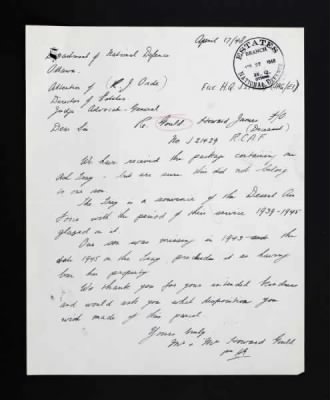 April 17/48
Department of National Defence
Ottawa.
ESTATES
BRANCH
1948
H.Q.
NATIONAL DEFENCE
Attention of
File H.Q.
Director of Estates
Judge Advocate-General
Dear Sir
Re. Gould Howard James F/O
(Deceased)
No J 21429 R.C.A.F.
We have received the package containing an
Ash Tray - but are sure this did not belong
to our son.
The Tray is a souvenir of the Desert Air
Force with the period of their service 1939-1945
on it.
Our son was missing in 1943 and the
date 1945 on the Tray precludes it as having
been his property.
We thank you for your intended kindness
and would ask you what disposition you
wish made of this parcel.
Yours truly
Mr & Mrs Howard Gould